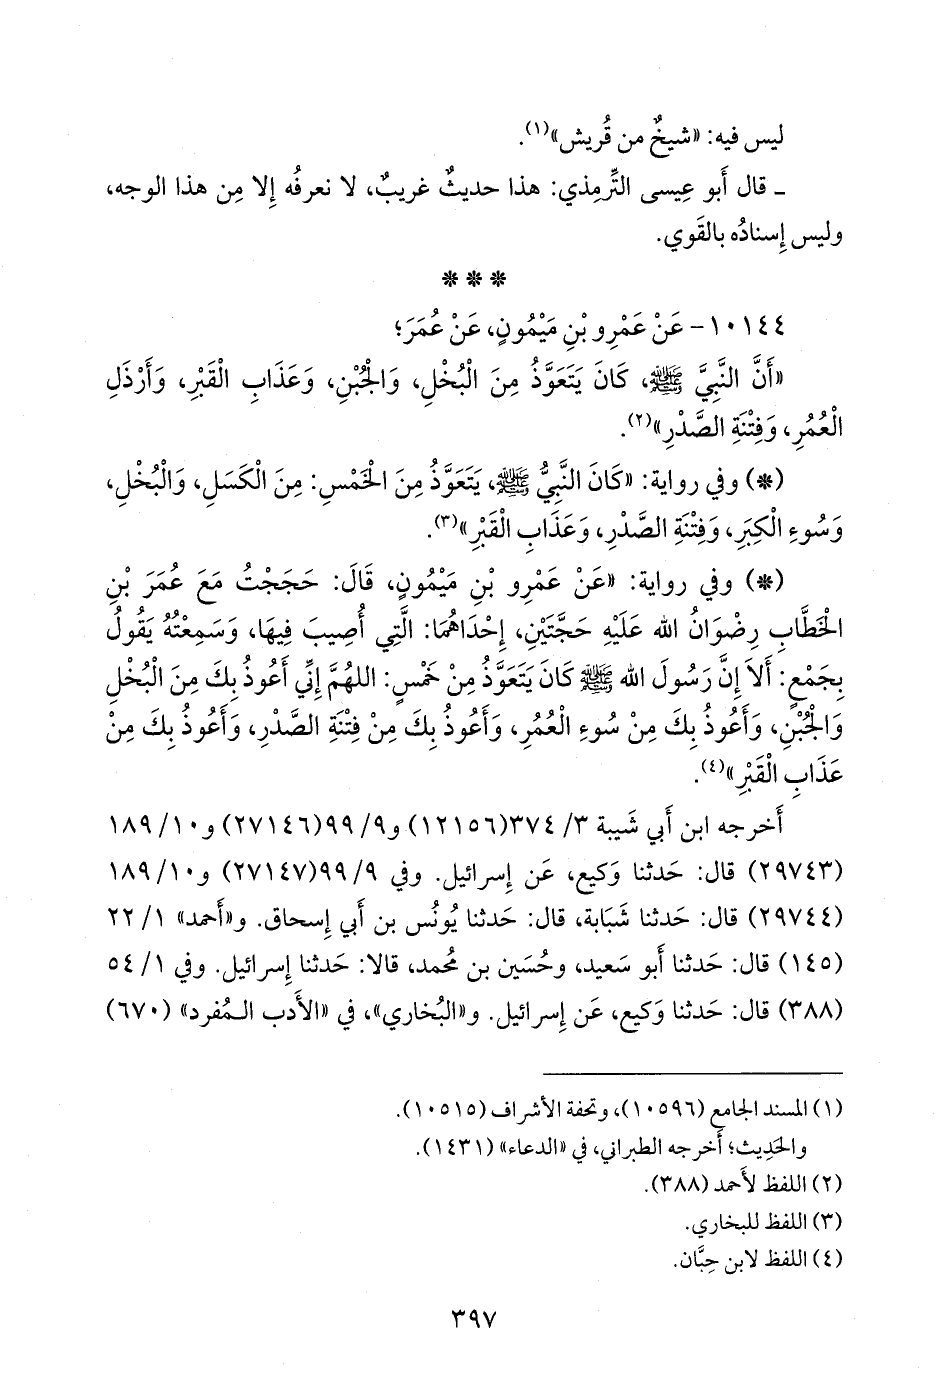 ليس فيه: «شيخٌ من قُريش»(١).
ـ قال أَبو عِيسى التِّرمِذي: هذا حديثٌ غريبٌ، لا نعرفُه إِلا مِن هذا الوجه،
وليس إِسنادُه بالقَوي.
* * *
١٠١٤٤- عَنْ عَمْرِو بْنِ مَيْمُونٍ، عَنْ عُمَرَ؛
«أَنَّ النَّبِيَّ ﷺ، كَانَ يَتَعَوَّذُ مِنَ الْبُخْلِ، وَالْجُبْنِ، وَعَذَابِ الْقَبْرِ، وَأَرْذَلِ
الْعُمُرِ، وَفِتْنَةِ الصَّدْرِ»(٢).
(*) وفي رواية: «كَانَ النَّبِيُّ ﷺ، يَتَعَوَّذُ مِنَ الْخَمْسِ: مِنَ الْكَسَلِ، وَالْبُخْلِ،
وَسُوءِ الْكِبَرِ، وَفِتْنَةِ الصَّدْرِ، وَعَذَابِ الْقَبْرِ»(٣).
(*) وفي رواية: «عَنْ عَمْرِو بْنِ مَيْمُونٍ، قَالَ: حَجَجْتُ مَعَ عُمَرَ بْنِ
الْخَطَّابِ رِضْوَانُ الله عَلَيْهِ حَجَّتَيْنِ، إِحْدَاهُمَا: الَّتِي أُصِيبَ فِيهَا، وَسَمِعْتُهُ يَقُولُ
بِجَمْعٍ: أَلاَ إِنَّ رَسُولَ الله ﷺ كَانَ يَتَعَوَّذُ مِنْ خَمْسٍ: اللهُمَّ إِنِّي أَعُوذُ بِكَ مِنَ الْبُخْلِ
وَالْجُبْنِ، وَأَعُوذُ بِكَ مِنْ سُوءِ الْعُمُرِ، وَأَعُوذُ بِكَ مِنْ فِتْنَةِ الصَّدْرِ، وَأَعُوذُ بِكَ مِنْ
عَذَابِ الْقَبْرِ»(٤).
أَخرجه ابن أَبي شَيبة ٣/ ٣٧٤(١٢١٥٦) و٩/ ٩٩(٢٧١٤٦) و١٠/ ١٨٩
(٢٩٧٤٣) قال: حَدثنا وَكيع، عَن إِسرائيل. وفي ٩/ ٩٩(٢٧١٤٧) و١٠/ ١٨٩
(٢٩٧٤٤) قال: حَدثنا شَبَابة، قال: حَدثنا يُونُس بن أَبي إِسحاق. و«أَحمد» ١/ ٢٢
(١٤٥) قال: حَدثنا أَبو سَعيد، وحُسَين بن مُحمد، قالا: حَدثنا إِسرائيل. وفي ١/ ٥٤
(٣٨٨) قال: حَدثنا وَكيع، عَن إِسرائيل. و«البُخاري»، في «الأَدب الـمُفرد» (٦٧٠)
(١) المسند الجامع (١٠٥٩٦)، وتحفة الأشراف (١٠٥١٥).
والحَدِيث؛ أَخرجه الطبراني، في «الدعاء» (١٤٣١).
(٢) اللفظ لأَحمد (٣٨٨).
(٣) اللفظ للبخاري.
(٤) اللفظ لابن حِبَّان.
٣٩٧